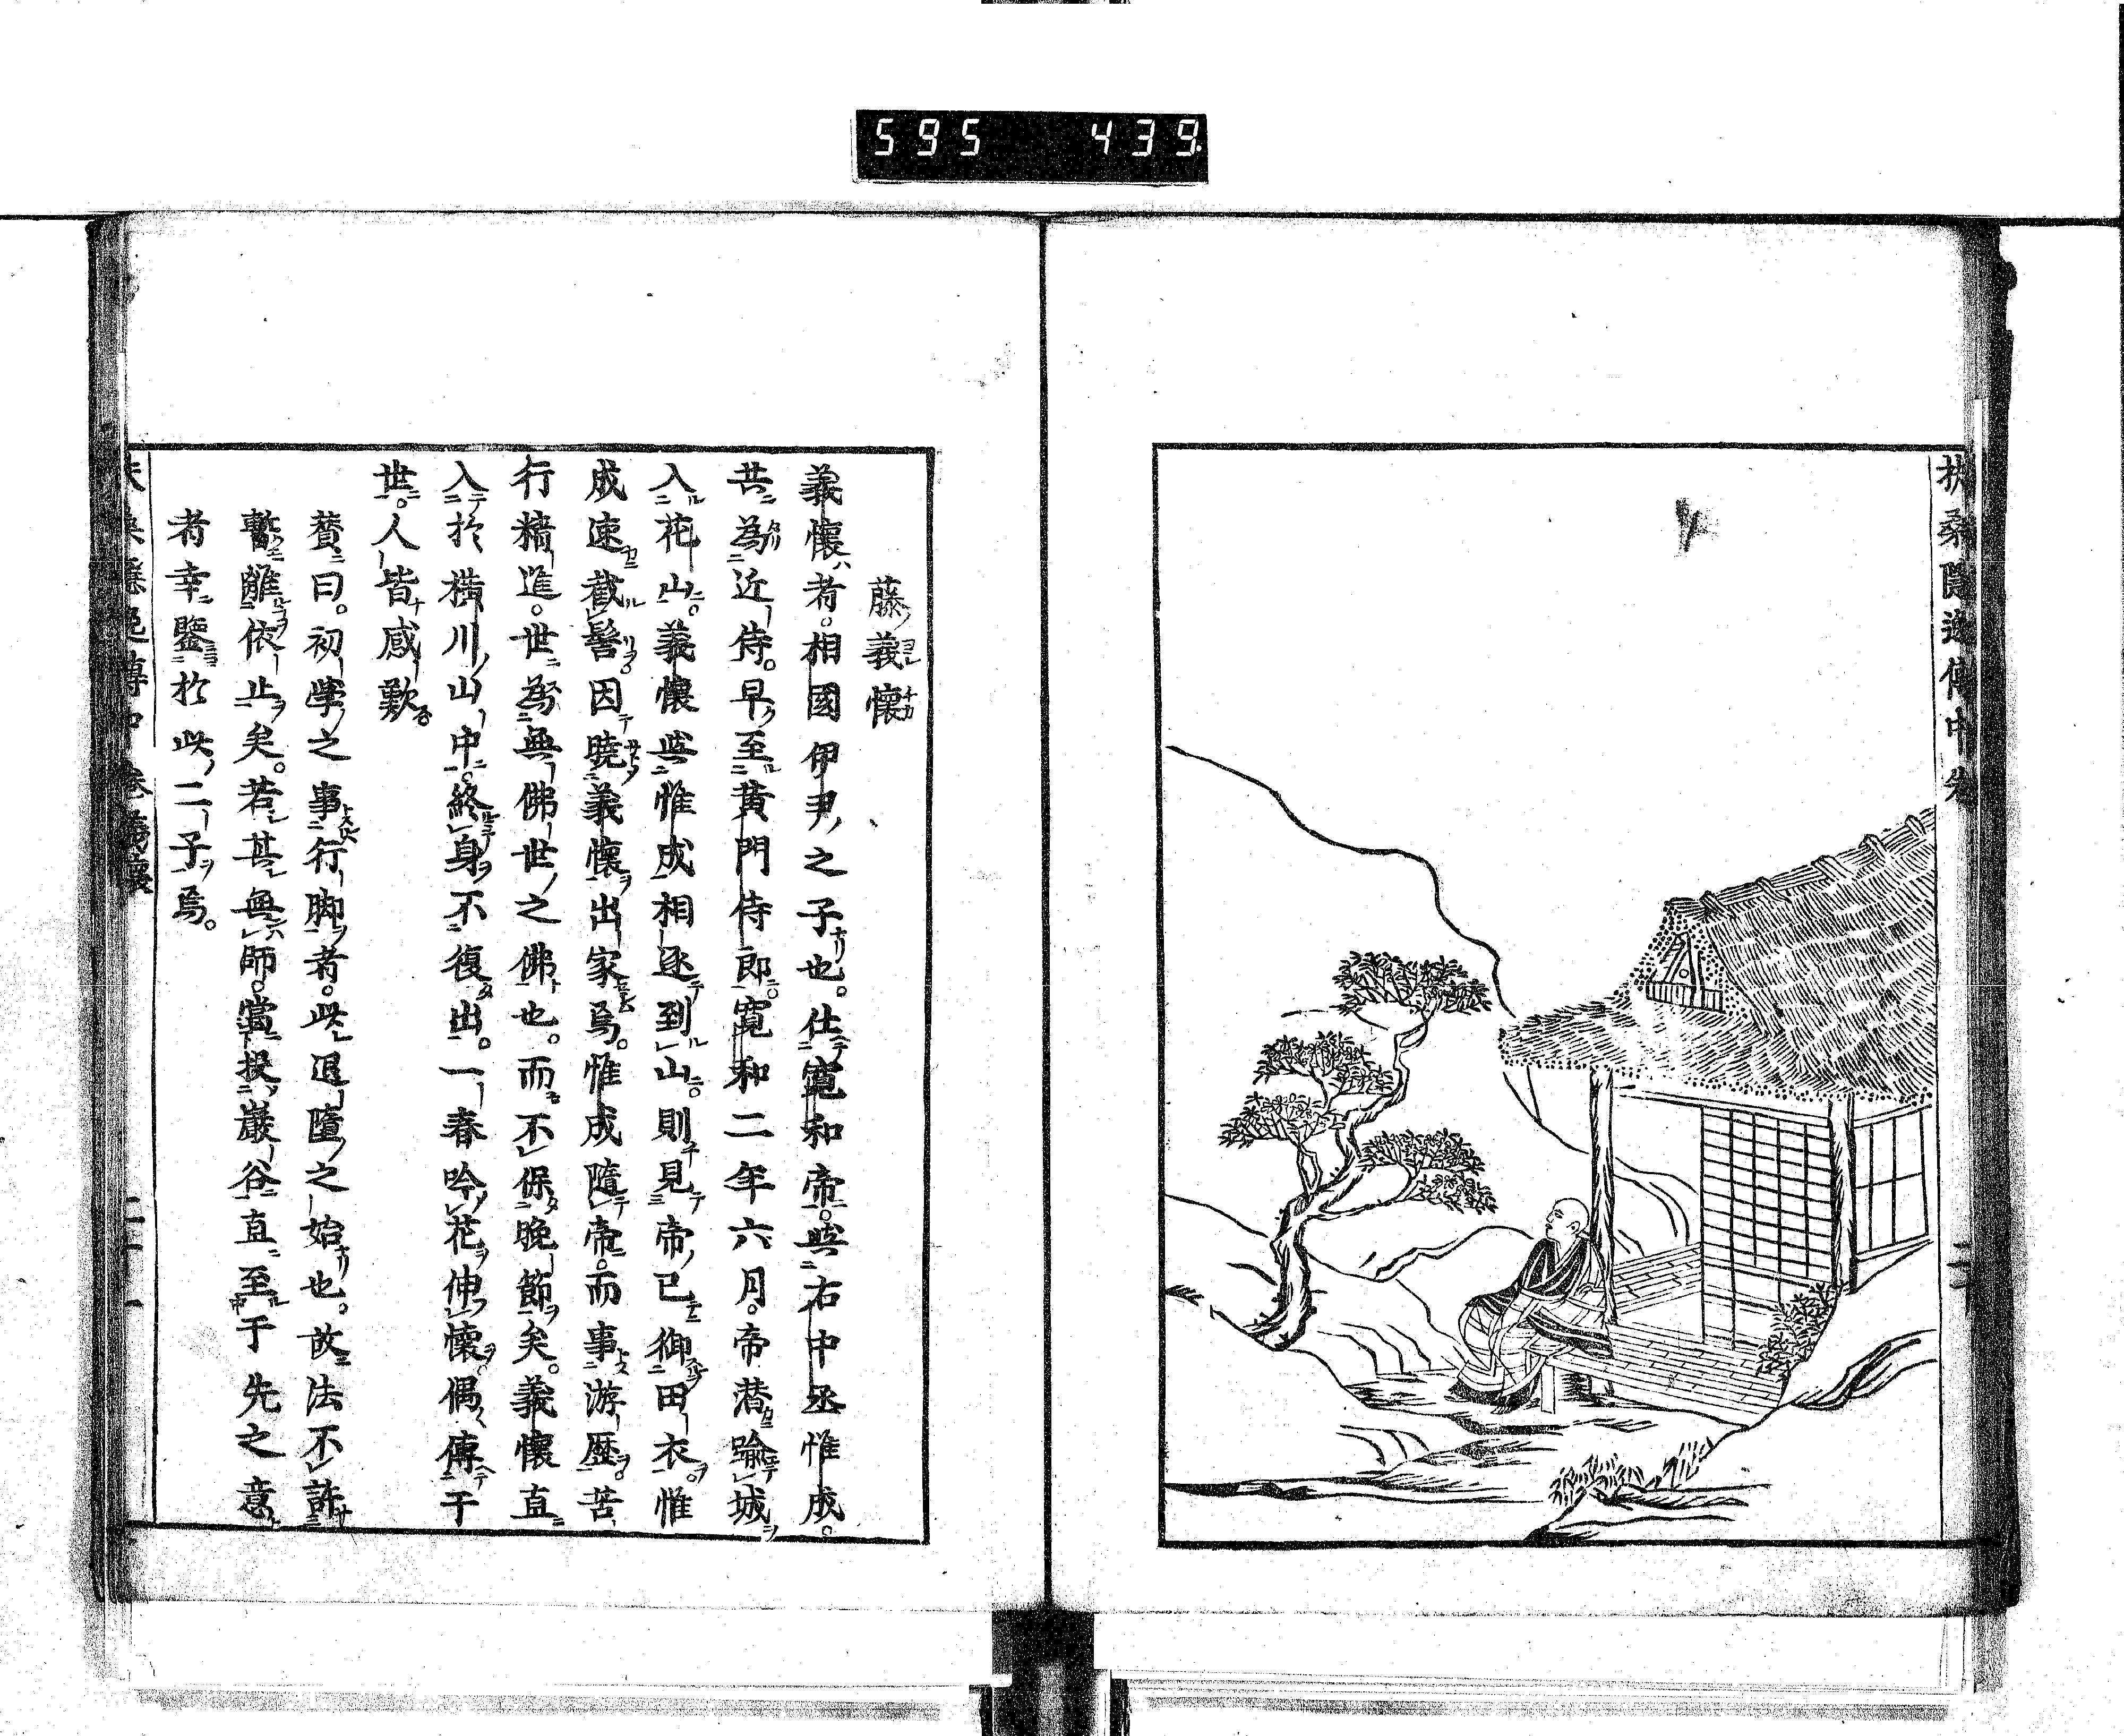 595 439
扶桑隠逸傳中
二十
藤義懷
義懷者。相國伊尹之子也。仕寛和帝。與右中丞惟成。
共為近侍。早至黄門侍郎。寛和二年六月。帝潜踰城
入花山。義懷與惟成相逐到山。則見帝已御田衣。惟
成速截髻。因曉義懷出家焉。惟成隨帝。而事游歴。苦
行精進。世為無佛世之佛也。而不保晚節矣。義懷直
入於横川山中。終身不復出。一春吟花伸懷。偶傳于
世。人皆感歎。
賛曰。初學之事行脚者。此退墮之始也。故法不許
暫離依止矣。若其無師。當投巖谷。直至于先之意
者幸鑒於此二子焉。